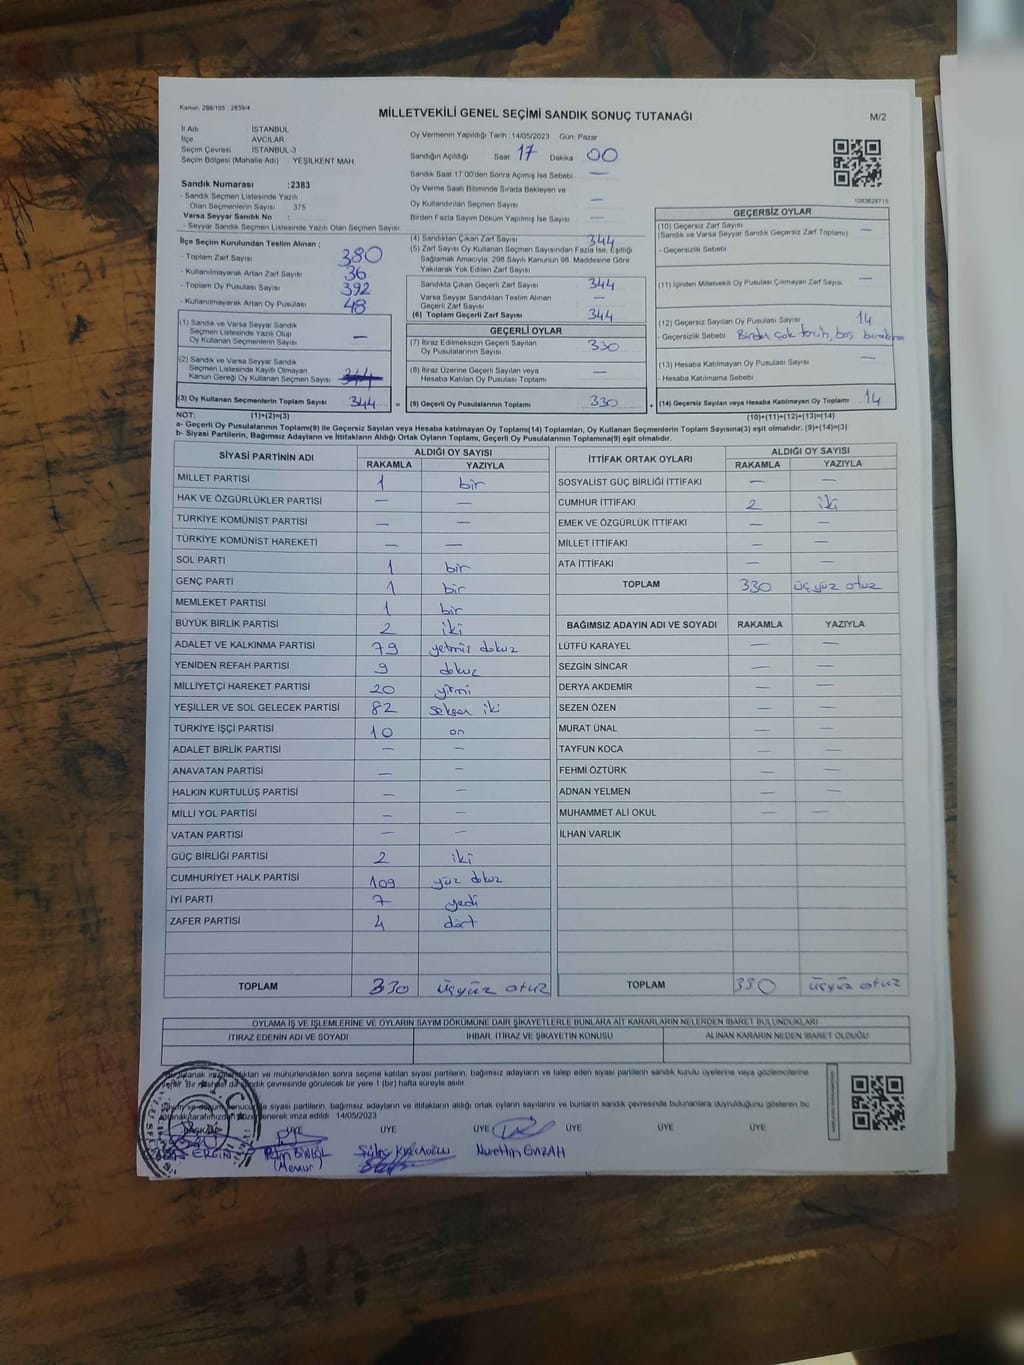 Kanun, 298/105 , 2839/4
MİLLETVEKİLİ GENEL SEÇİMİ SANDIK SONUÇ TUTANAĞI
M/2
İl Adı İSTANBUL
İlçe AVCILAR
Seçim Çevresi İSTANBUL-3
Seçim Bölgesi (Mahalle Adı) : YEŞİLKENT MAH
Sandık Numarası :2383
- Sandık Seçmen Listesinde Yazılı
Olan Seçmenlerin Sayısı 375
Varsa Seyyar Sandık No :
- Seyyar Sandık Seçmen Listesinde Yazılı Olan Seçmen Sayısı:
Oy Vermenin Yapıldığı Tarih :14/05/2023 Gün: Pazar
Sandığın Açıldığı Saat 17 Dakika 00
Sandık Saat 17:00'den Sonra Açılmış İse Sebebi —
Oy Verme Saati Bitiminde Sırada Bekleyen ve
Oy Kullandırılan Seçmen Sayısı —
Birden Fazla Sayım Döküm Yapılmış İse Sayısı —
1083628715
İlçe Seçim Kurulundan Teslim Alınan ;
- Toplam Zarf Sayısı 380
- Kullanılmayarak Artan Zarf Sayısı 36
- Toplam Oy Pusulası Sayısı 392
- Kullanılmayarak Artan Oy Pusulası 48
(1) Sandık ve Varsa Seyyar Sandık
Seçmen Listesinde Yazılı Olup
Oy Kullanan Seçmen Sayısı —
(2) Sandık ve Varsa Seyyar Sandık
Seçmen Listesinde Kayıtlı Olmayan
Kanun Gereği Oy Kullanan Seçmen Sayısı 344
(3) Oy Kullanan Seçmenlerin Toplam Sayısı 344 =
(4) Sandıktan Çıkan Zarf Sayısı 344
(5) Zarf Sayısı Oy Kullanan Seçmen Sayısından Fazla İse, Eşitliği
Sağlamak Amacıyla, 298 Sayılı Kanunun 98. Maddesine Göre
Yakılarak Yok Edilen Zarf Sayısı
Sandıkta Çıkan Geçerli Zarf Sayısı 344
Varsa Seyyar Sandıktan Teslim Alınan
Geçerli Zarf Sayısı —
(6) Toplam Geçerli Zarf Sayısı 344
GEÇERLİ OYLAR
(7) İtiraz Edilmeksizin Geçerli Sayılan
Oy Pusulalarının Sayısı 330
(8) İtiraz Üzerine Geçerli Sayılan veya
Hesaba Katılan Oy Pusulası Toplamı —
(9) Geçerli Oy Pusulalarının Toplamı 330 +
GEÇERSİZ OYLAR
(10) Geçersiz Zarf Sayısı —
(Sandık ve Varsa Seyyar Sandık Geçersiz Zarf Toplamı)
- Geçersizlik Sebebi
(11) İçinden Milletvekili Oy Pusulası Çıkmayan Zarf Sayısı —
(12) Geçersiz Sayılan Oy Pusulası Sayısı 14
- Geçersizlik Sebebi Birden çok tercih, boş bırakılması
(13) Hesaba Katılmayan Oy Pusulası Sayısı —
- Hesaba Katılmama Sebebi
(14) Geçersiz Sayılan veya Hesaba Katılmayan Oy Toplamı 14
NOT: (1)+(2)=(3) (10)+(11)+(12)+(13)=(14)
a- Geçerli Oy Pusulalarının Toplamı(9) ile Geçersiz Sayılan veya Hesaba katılmayan Oy Toplamı(14) Toplamları, Oy Kullanan Seçmenlerin Toplam Sayısına(3) eşit olmalıdır. (9)+(14)=(3)
b- Siyasi Partilerin, Bağımsız Adayların ve İttifakların Aldığı Ortak Oyların Toplamı, Geçerli Oy Pusulalarının Toplamına(9) eşit olmalıdır.
SİYASİ PARTİNİN ADI ALDIĞI OY SAYISI
RAKAMLA YAZIYLA
MİLLET PARTİSİ 1 bir
HAK VE ÖZGÜRLÜKLER PARTİSİ — —
TÜRKİYE KOMÜNİST PARTİSİ — —
TÜRKİYE KOMÜNİST HAREKETİ — —
SOL PARTİ 1 bir
GENÇ PARTİ 1 bir
MEMLEKET PARTİSİ 1 bir
BÜYÜK BİRLİK PARTİSİ 2 iki
ADALET VE KALKINMA PARTİSİ 79 yetmiş dokuz
YENİDEN REFAH PARTİSİ 9 dokuz
MİLLİYETÇİ HAREKET PARTİSİ 20 yirmi
YEŞİLLER VE SOL GELECEK PARTİSİ 82 seksen iki
TÜRKİYE İŞÇİ PARTİSİ 10 on
ADALET BİRLİK PARTİSİ — —
ANAVATAN PARTİSİ — —
HALKIN KURTULUŞ PARTİSİ — —
MİLLİ YOL PARTİSİ — —
VATAN PARTİSİ — —
GÜÇ BİRLİĞİ PARTİSİ 2 iki
CUMHURİYET HALK PARTİSİ 109 yüz dokuz
İYİ PARTİ 7 yedi
ZAFER PARTİSİ 4 dört
TOPLAM 330 üçyüz otuz
İTTİFAK ORTAK OYLARI ALDIĞI OY SAYISI
RAKAMLA YAZIYLA
SOSYALİST GÜÇ BİRLİĞİ İTTİFAKI — —
CUMHUR İTTİFAKI 2 iki
EMEK VE ÖZGÜRLÜK İTTİFAKI — —
MİLLET İTTİFAKI — —
ATA İTTİFAKI — —
TOPLAM 330 üçyüz otuz
BAĞIMSIZ ADAYIN ADI VE SOYADI RAKAMLA YAZIYLA
LÜTFÜ KARAYEL — —
SEZGİN SİNCAR — —
DERYA AKDEMİR — —
SEZEN ÖZEN — —
MURAT ÜNAL — —
TAYFUN KOCA — —
FEHMİ ÖZTÜRK — —
ADNAN YELMEN — —
MUHAMMET ALİ OKUL — —
İLHAN VARLIK
TOPLAM 330 üçyüz otuz
OYLAMA İŞ VE İŞLEMLERİNE VE OYLARIN SAYIM DÖKÜMÜNE DAİR ŞİKAYETLERLE BUNLARA AİT KARARLARIN NELERDEN İBARET BULUNDUKLARI
İTİRAZ EDENİN ADI VE SOYADI İHBAR, İTİRAZ VE ŞİKAYETİN KONUSU ALINAN KARARIN NEDEN İBARET OLDUĞU
ve mühürlendikten sonra seçime katılan siyasi partilerin, bağımsız adayların ve talep eden siyasi partilerin sandık kurulu üyelerine veya gözlemcilerine
Bir nüshası da sandık çevresinde görülecek bir yere 1 (bir) hafta süreyle asılır.
siyasi partilerin, bağımsız adayların ve ittifakların aldığı ortak oyların sayılarını ve bunların sandık çevresinde bulunanlara duyurulduğunu gösteren bu
tutanak tarafımızdan düzenlenerek imza edildi 14/05/2023
BAŞKAN ÜYE ÜYE ÜYE ÜYE ÜYE ÜYE
ERGİN
(Memur)
Nurettin